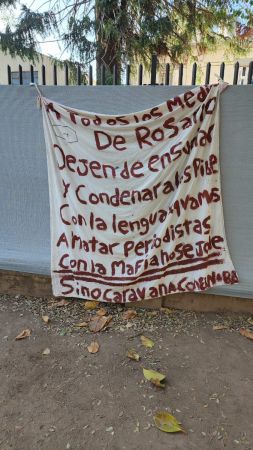 A Todos los Medi
De Rosario
Dejen de ensuciar
y Condenar a los Pibe
Con la lengua o vamos
A matar Periodistas
Con la Mafia no se Jode